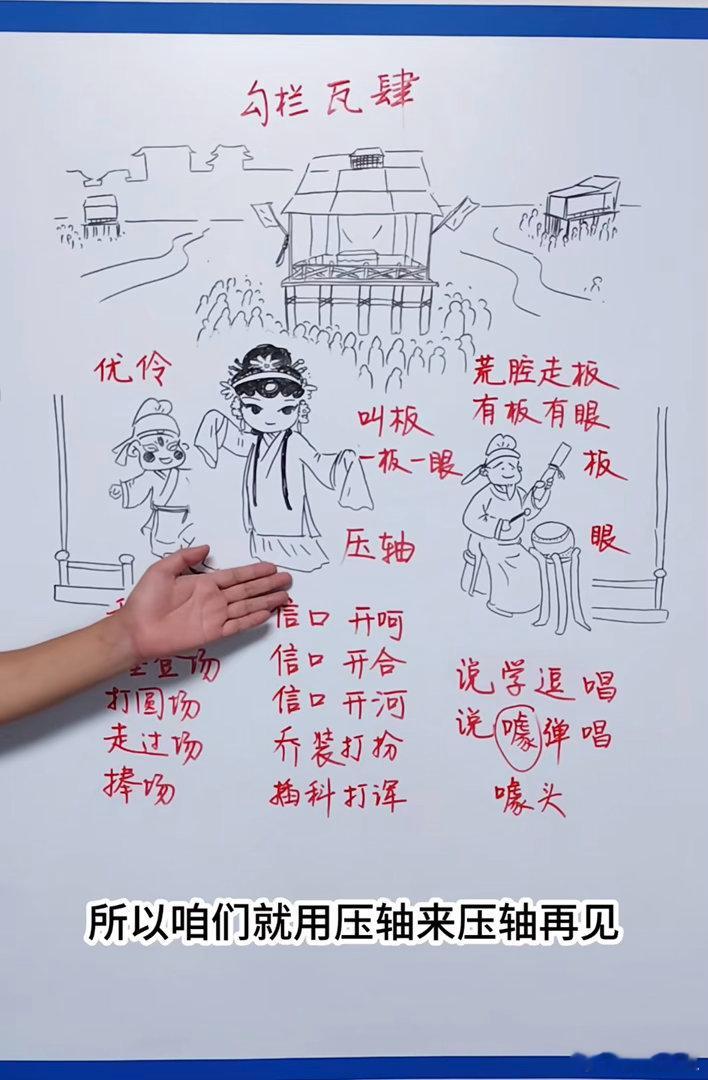 勾栏瓦肆
优伶
荒腔走板
有板有眼
叫板
一板一眼
板
眼
压轴
信口开呵
登场
信口开合
打圆场
信口开河
走过场
乔装打扮
捧场
插科打诨
说学逗唱
说噱弹唱
噱头
所以咱们就用压轴来压轴再见